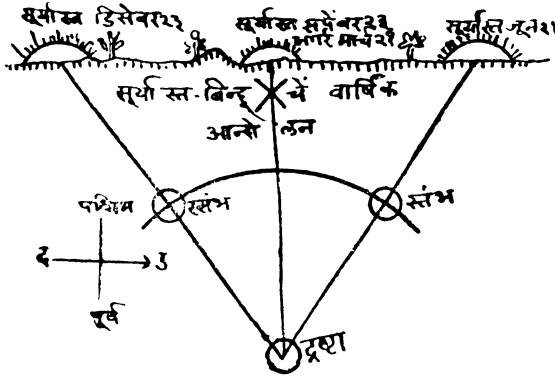 सूर्यास्त डिसेंबर२३
सूर्यास्त सप्टेंबर२३
आणि मार्च२१
सूर्यास्त जून२१
सूर्या स्त-बिन्दू चें वार्षिक
आन्दो लन
पश्चिम
स्तंभ
स्तंभ
द
उ
पूर्व
द्रष्टा